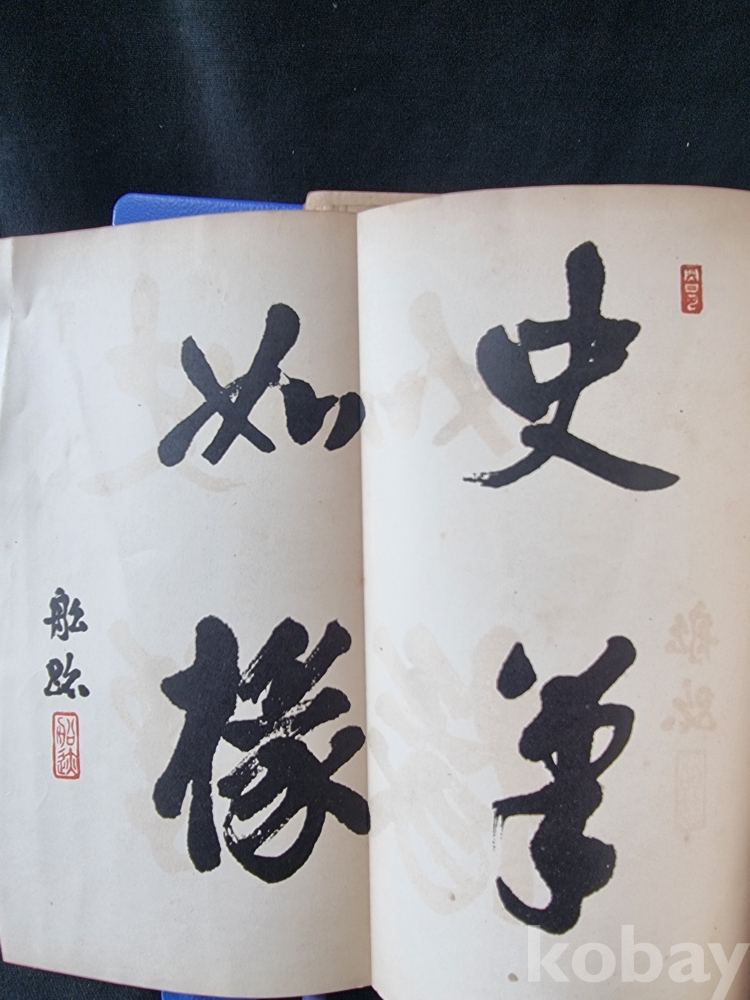 史筆
如椽
船跡
船迹
kobay